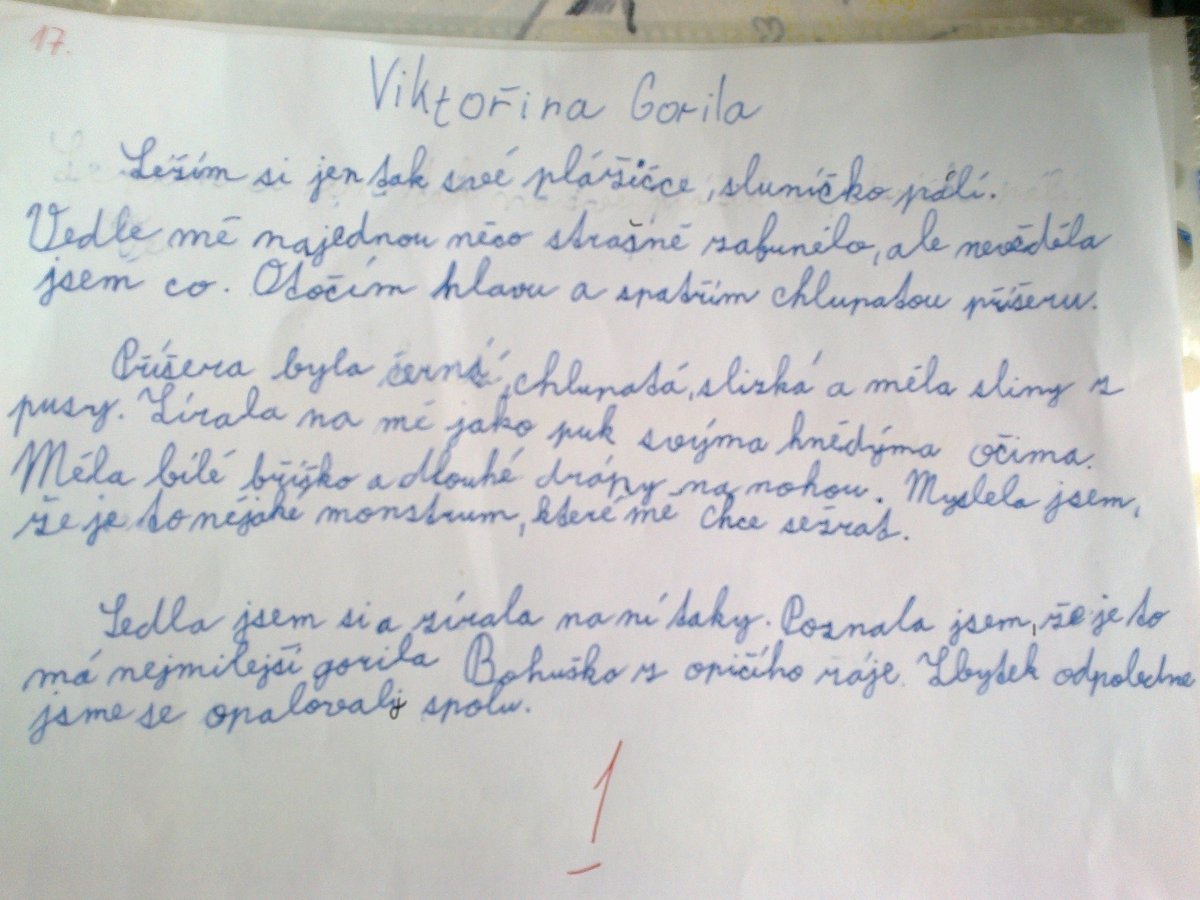 17.
Viktořina Gorila
Ležím si jen tak své plážičce, sluníčko pálí.
Vedle mě najednou něco strašně zabunělo, ale nevěděla
jsem co. Otočím hlavu a spatřím chlupatou příšeru.
Příšera byla černá, chlupatá, slizká a měla sliny z
pusy. Zírala na mě jako puk svýma hnědýma očima.
Měla bílé bříško a dlouhé drápy na nohou. Myslela jsem,
že je to nějaké monstrum, které mě chce sežrat.
Sedla jsem si a zírala na ní taky. Poznala jsem, že je to
má nejmilejší gorila Bohuška z opičího ráje. Zbytek odpoledne
jsme se opalovaly spolu.
1